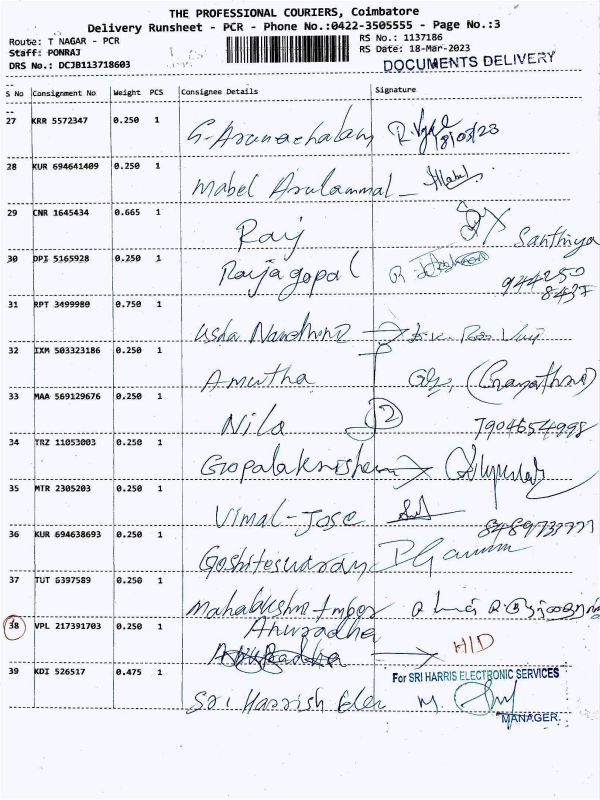 THE PROFESSIONAL COURIERS, Coimbatore
Delivery Runsheet - PCR - Phone No.:0422-3505555 - Page No.:3
Route: T NAGAR - PCR
RS No.: 1137186
Staff: PONRAJ
RS Date: 18-Mar-2023
DRS No.: DCJB113718603
DOCUMENTS DELIVERY
S No Consignment No Weight PCS Consignee Details Signature
27 KRR 5572347 0.250 1 G-Arunachalam
28 KUR 694641409 0.250 1 Mabel Arulammal
29 CNR 1645434 0.665 1 Raij Santhiya
30 DPI 5165928 0.250 1 Raijagopal
31 RPT 3499980 0.750 1 Usda Nandhini
32 IXM 503323186 0.250 1 Amutha
33 MAA 569129676 0.250 1 Nila 2
34 TRZ 11053003 0.250 1 Gopalakrishnan
35 MTR 2305203 0.250 1 Vimal-Jose
36 KUR 694638693 0.250 1
37 TUT 6397589 0.250 1 Mahalakshmi
38 VPL 217391703 0.250 1 Anuradha
H/D
39 KDI 526517 0.475 1 Sri Harrish Elec
For SRI HARRIS ELECTRONIC SERVICES
MANAGER.